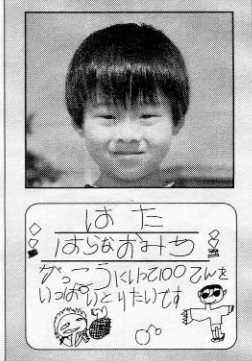 はた
はらなおみち
がっこうにいって100てんを
いっぱいとりたいです